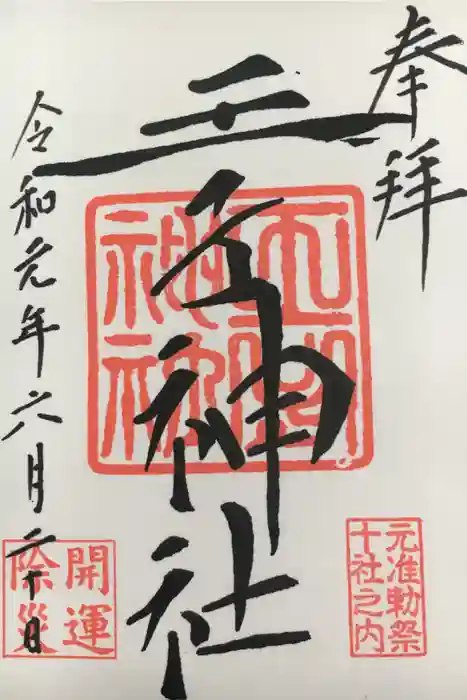 奉拝
王子神社
令和元年六月二十日
元准勅祭
十社之内
開運
除災